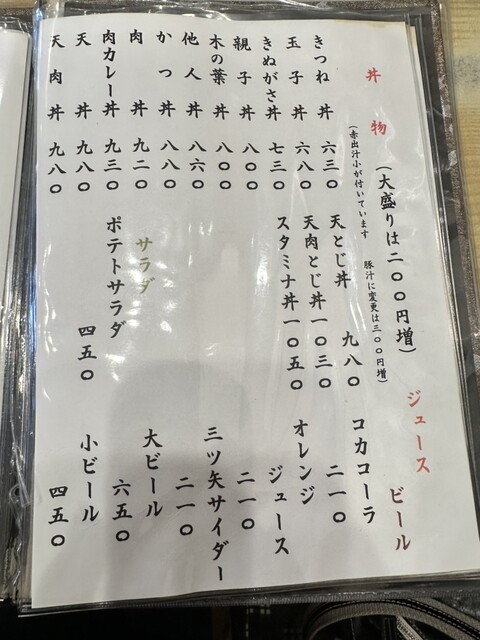 丼物 (大盛りは二〇〇円増)
(赤出汁小が付いています 豚汁に変更は三〇〇円増)
きつね丼 六三〇
玉子丼 六八〇
きぬがさ丼 七三〇
親子丼 八〇〇
木の葉丼 八〇〇
他人丼 八六〇
かつ丼 八八〇
肉丼 九二〇
肉カレー丼 九三〇
天丼 九八〇
天肉丼 九八〇
天とじ丼 九八〇
天肉とじ丼 一〇三〇
スタミナ丼 一〇五〇
サラダ
ポテトサラダ 四五〇
ジュース
ビール
コカコーラ
二一〇
オレンジ
ジュース
二一〇
三ツ矢サイダー
二一〇
大ビール
六五〇
小ビール
四五〇